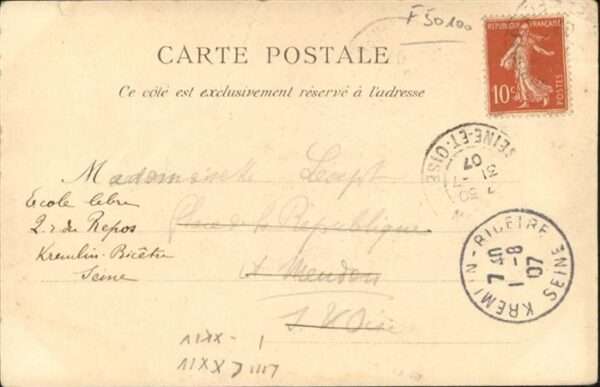 F 50100
CARTE POSTALE
Ce côté est exclusivement réservé à l'adresse
REPUBLIQUE FRANÇAISE
10c POSTES
SEINE-ET-OISE
7 50
31 -7
07
Mademoiselle
Ecole libre
2. r du Repos
Kremlin-Bicêtre
Seine
Place de la République
à Meudon
S. & Oise
KREMLIN-BICETRE SEINE
7 40
1 -8
07